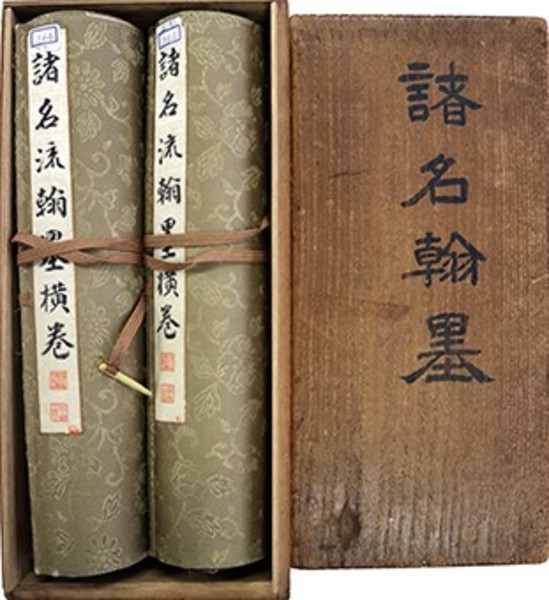 諸名翰墨
諸名流翰墨橫卷
諸名流翰墨橫卷